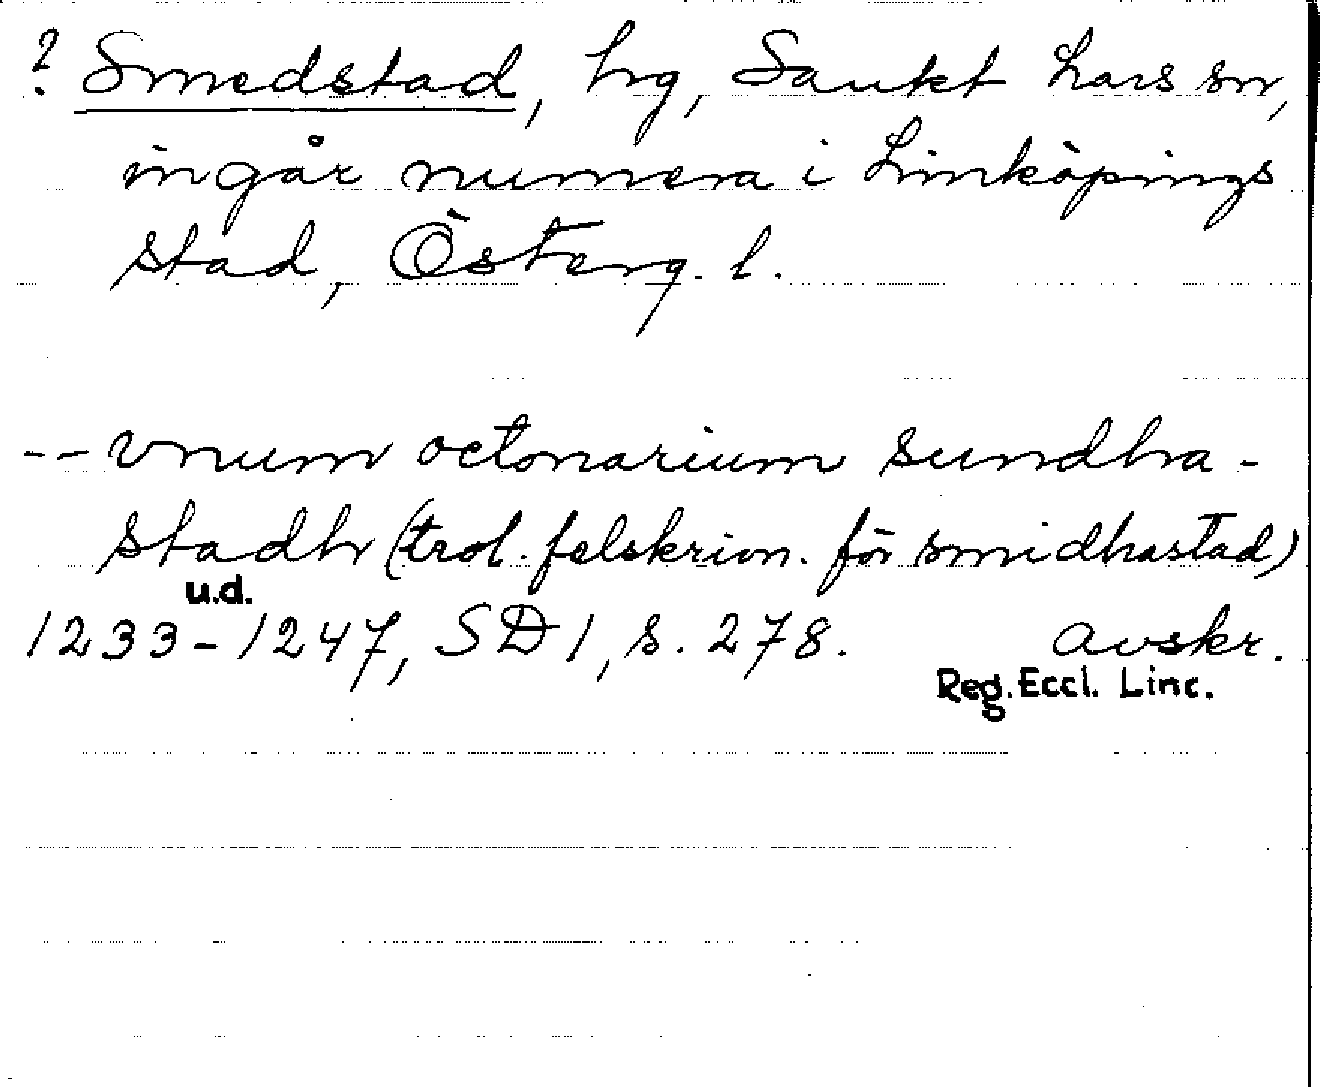 ? Smedstad, hg, Sankt Lars sn,
ingår numera i Linköpings
stad, Österg. l.
-- vnum octonarium sundha-
stadh (trol. felskrivn. för smidhastad)
u.d.
1233-1247, SD 1, s. 278. avskr.
Reg. Eccl. Linc.